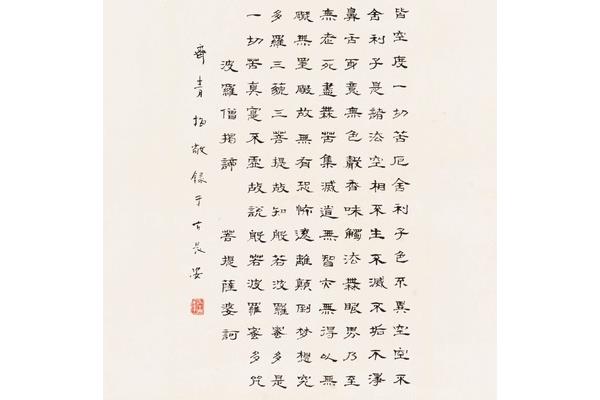 皆空度一切苦厄舍利子色不異空空不
舍利子是諸法空相不生不滅不垢不淨
鼻舌身意無色聲香味觸法無眼界乃至
無老死盡無苦集滅道無智亦無得以無
礙無罣礙故無有恐怖遠離顛倒梦想究
多羅三藐三菩提故知般若波羅蜜多是
一切苦真實不虛故說般若波羅蜜多咒
波羅僧揭諦 菩提薩婆訶
齊青楊敬録于古長安